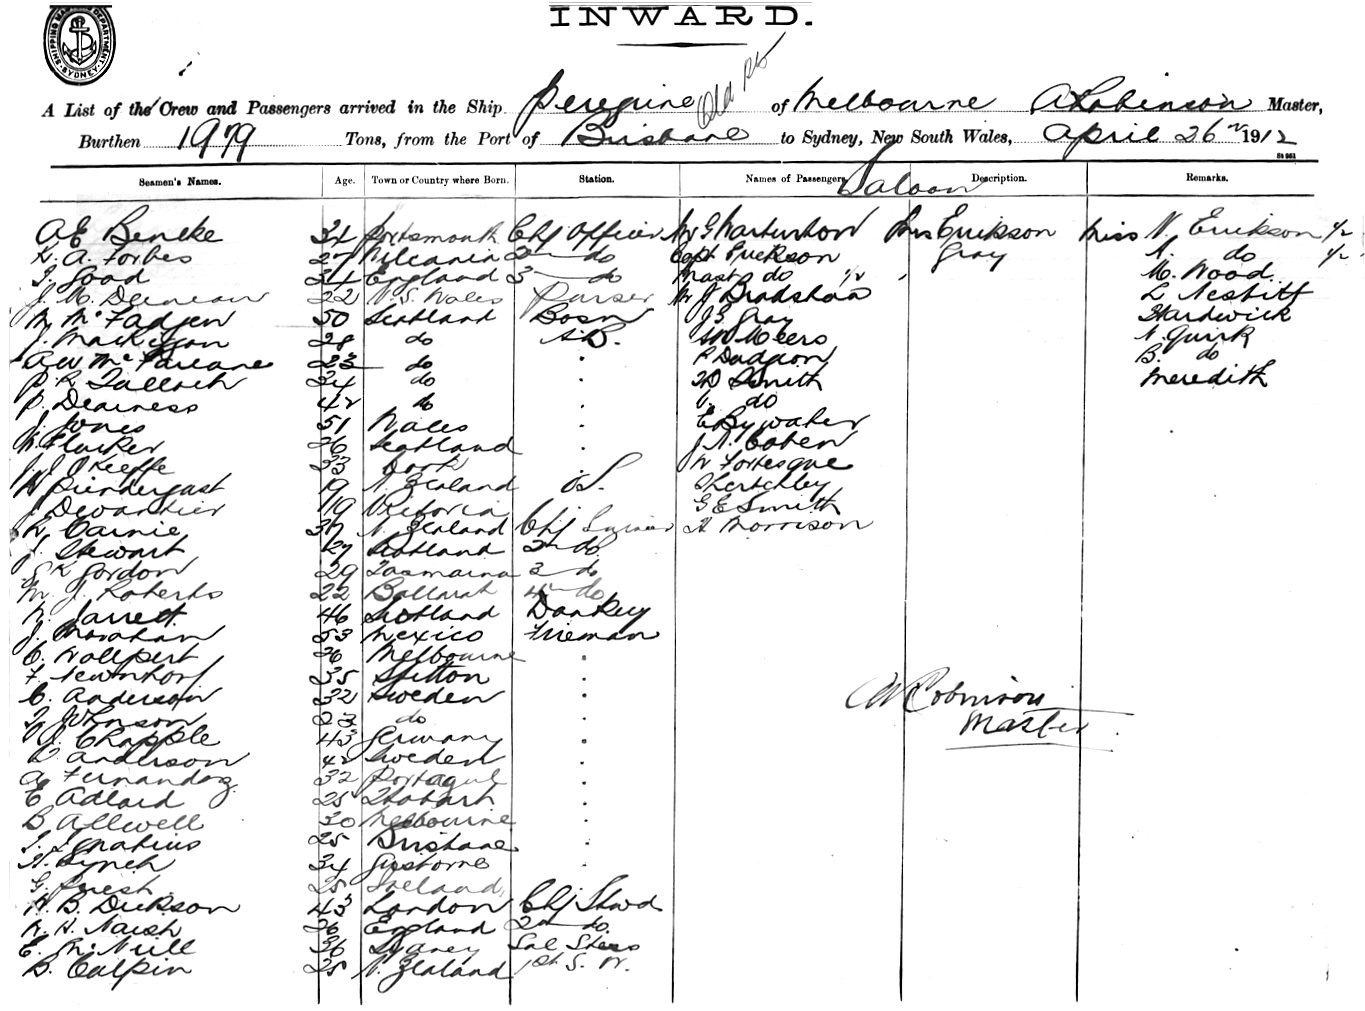 SHIPPING MASTER'S DEPARTMENT. SYDNEY.
INWARD.
Old
A List of the Crew and Passengers arrived in the Ship Peregrine of Melbourne A Robinson Master,
Burthen 1979 Tons, from the Port of Brisbane to Sydney, New South Wales, April 26 1912
Seamen's Names. Age. Town or Country where Born. Station. Names of Passengers. Description. Remarks.
Saloon
A E Beneke 34 Portsmouth Chf Officer Mr G Warburton Mrs Erikson Miss V. Erikson 1/2
K. A. Forbes 27 2nd do Capt Erickson Gray do 1/2
J. Good 34 England 3 do Mast do 1/2 M. Wood
J. M. 22 N. S. Wales Purser Mr J Bradshaw L Nesbitt
M McFadyen 50 Scotland Bosn J. S. Gray Hardwick
J. MacKigan 28 do A.B. Meers N. Quirk
A W McFarlane 23 do P Dudgeon B. do
P R Tulloch 34 do Smith Meredith
P. Dearness 42 do V. do
J. Jones 51 Wales E Bywater
26 Scotland J. A. Cohen
J J O'Keeffe 33 Cork W Fortesque
Prendergast 19 N. Zealand O.S. Shertchley
J. 19 Victoria G E Smith
Carnie 37 N. Zealand Chf H Morrison
J. Stewart 27 Scotland 2nd do
Gordon 29 Tasmania 3 do
J. Roberts 22 Ballarat 4th do
Jarrett 46 Scotland Donkey
J. 53 Mexico Fireman
C. Wollpert 26 Melbourne
F. Newnhorf 35 Stetton
C. Anderson 32 Sweden
J. Johnson do
J. Chapple 43 Germany
Anderson 42 Sweden
A Fernandez 32 Portugul
E Adlard 25 Hobart
B Allwell 30 Melbourne
Ignatius 25 Brisbane
H. Lynch 34 Gisborne
G. Priest 25 Ireland
W. B. Dickson 43 London Chf Stwd
W. H. Naish 26 England 2nd do.
E. McNeill 36 Sydney Sal Stess
B. Culpin 25 N. Zealand 1st S. W.
A Robinson
Master